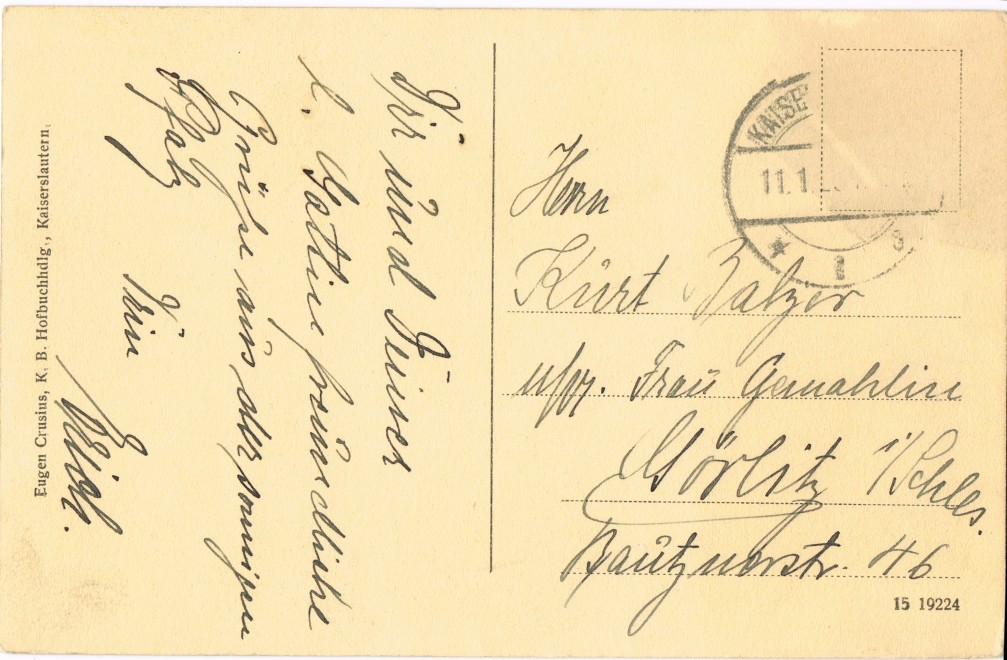 Dir und Deiner
l. Gattin freundliche
Grüße aus der sonnigen
Pfalz
Dein
Erich.
Eugen Crusius, K. B. Hofbuchhdlg., Kaiserslautern.
KAISE
11.1.2
* 2
Herrn
Kurt Balzer
u/ Frau Gemahlin
Görlitz i/Schles.
Bautznerstr. 46
15 19224